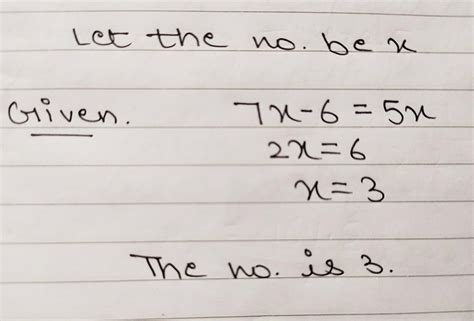 Let the no. be x
Given. 7x-6 = 5x
2x = 6
x = 3
The no. is 3.